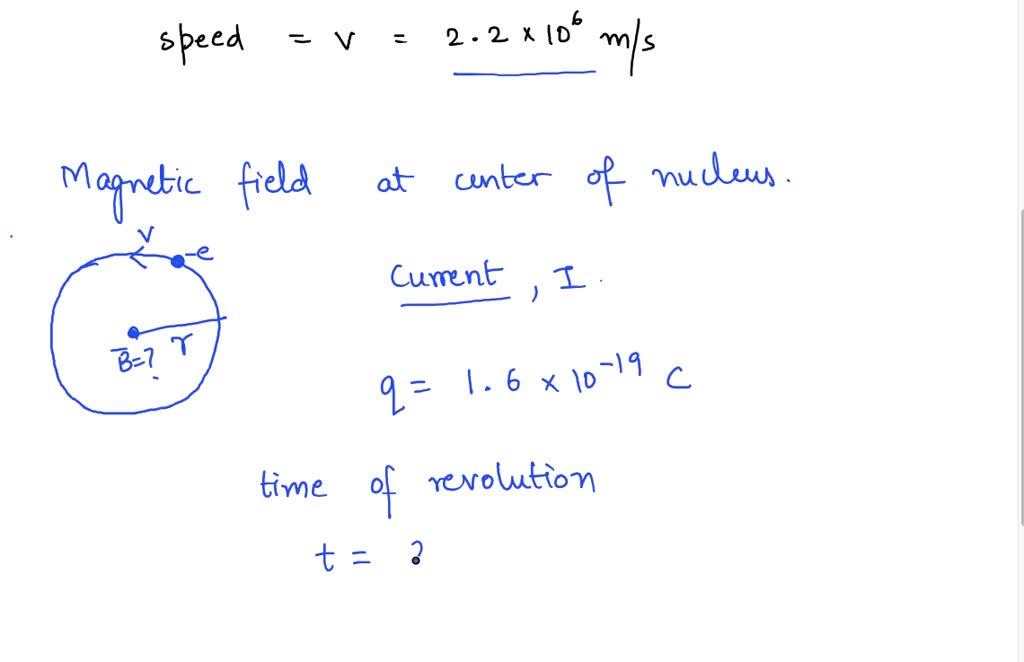 speed = v = 2.2 × 10⁶ m/s
Magnetic field at center of nucleus.
v
-e
Current, I.
B̅=?
r
q = 1.6 × 10⁻¹⁹ C
time of revolution
t = ?